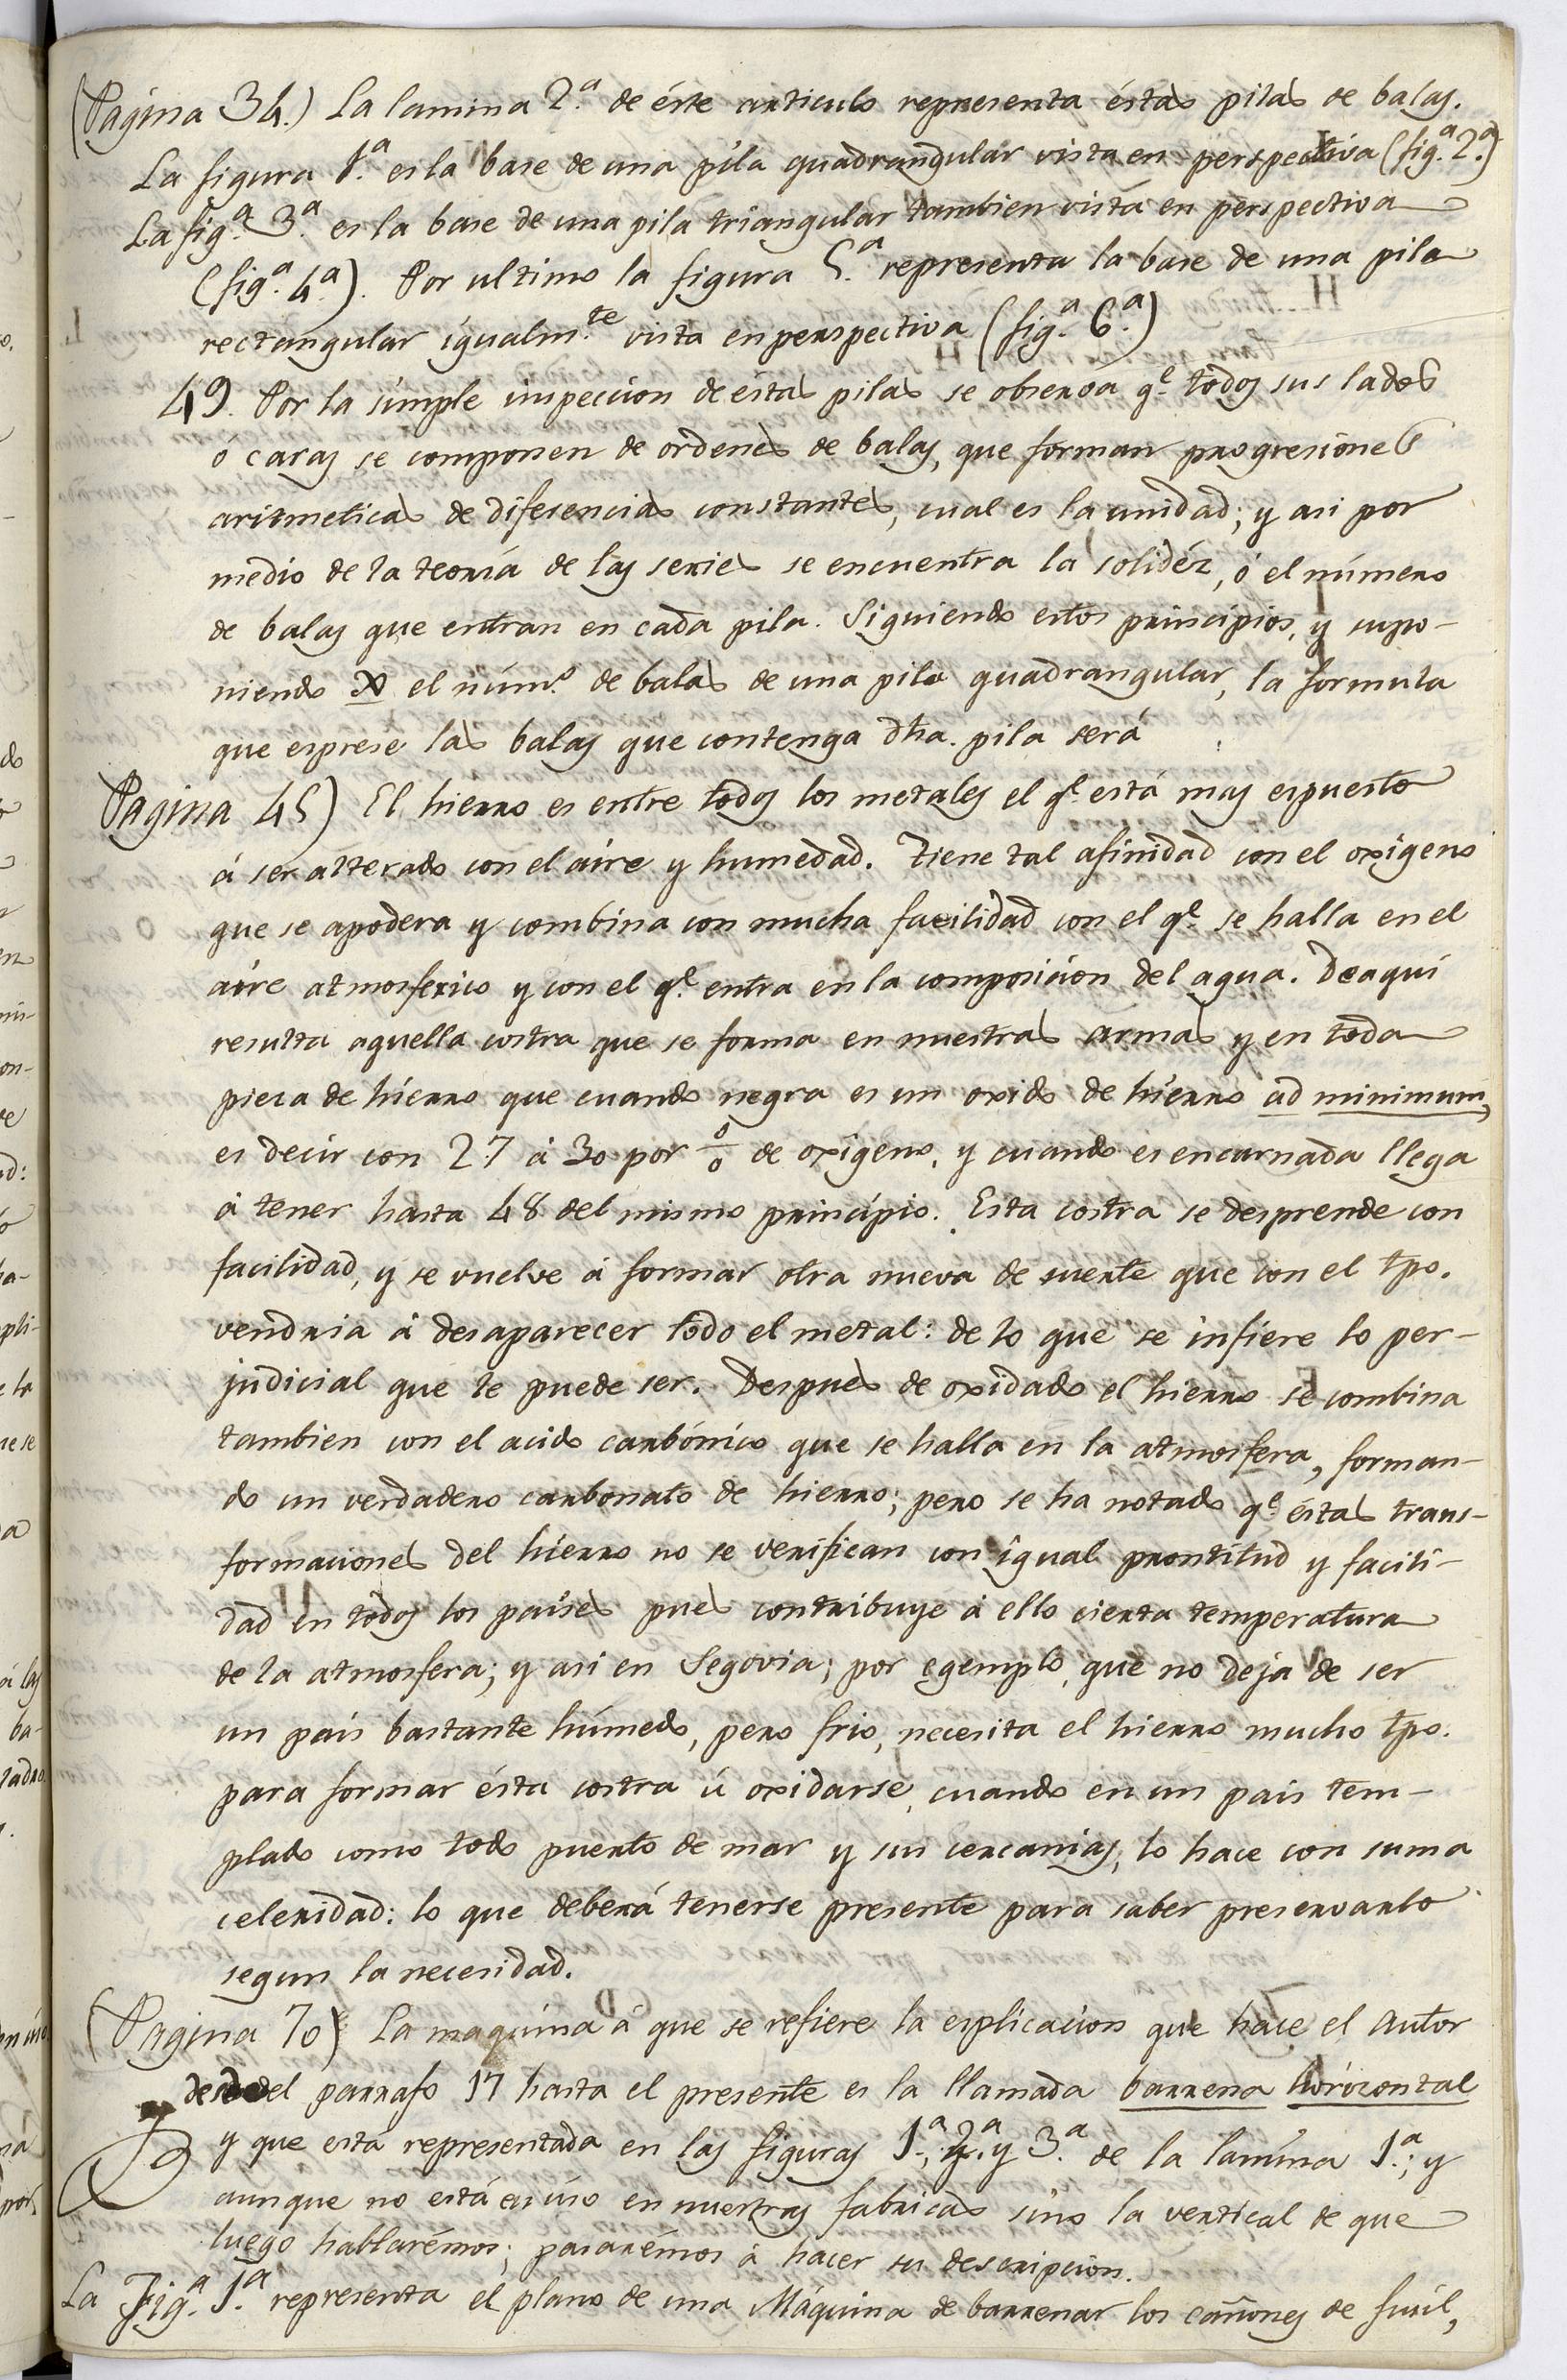 (Página 34.) La lamina 2.ª de éste articulo representa éstas pilas de balas.
La figura 1.ª es la base de una pila quadrangular vista en perspectiva (fig.ª 2.ª)
La fig.ª 3.ª es la base de una pila triangular tambien vista en perspectiva
(fig.ª 4.ª). Por ultimo la figura 5.ª representa la base de una pila
rectangular igualm.te vista en perspectiva (fig.ª 6.ª)
49. Por la simple inspeccion de éstas pilas se observa q.e todos sus lados
ó caras se componen de ordenes de balas, que forman progresiones
aritmeticas de diferencias constantes, cual es la unidad; y asi por
medio de la teoría de las series se encuentra la solidéz, ó el número
de balas que entran en cada pila. Siguiendo estos principios, y supo-
niendo x el núm.o de balas de una pila quadrangular, la formula
que esprese las balas que contenga dha. pila será
Pagina 45) El hierro es entre todos los metales el q.e está mas espuesto
á ser alterado con el aire y humedad. Tiene tal afinidad con el oxígeno
que se apodera y combina con mucha facilidad con el q.e se halla en el
aire atmosferico y con el q.e entra en la composicion del agua. De aqui
resulta aquella costra que se forma en nuestras armas y en toda
pieza de hierro que cuando negra es un oxido de hierro ad minimum,
es decir con 27 á 30 por o/o de oxígeno, y cuando es encarnada llega
á tener hasta 48 del mismo principio. Esta costra se desprende con
facilidad, y se vuelve á formar otra nueva de suerte que con el tpo.
vendria á desaparecer todo el metal: de lo que se infiere lo per-
judicial que le puede ser. Despues de oxidado el hierro se combina
tambien con el acido carbónico que se halla en la atmosfera, forman-
do un verdadero carbonato de hierro; pero se ha notado q.e éstas trans-
formaciones del hierro no se verifican con igual prontitud y facili-
dad en todos los países pues contribuye á ello cierta temperatura
de la atmosfera; y asi en Segovia; por egemplo, que no deja de ser
un pais bastante húmedo, pero frio, necesita el hierro mucho tpo.
para formar ésta costra ú oxidarse, cuando en un pais tem-
plado como todo puerto de mar y sus cercanias, lo hace con suma
celeridad: lo que deberá tenerse presente para saber preservarlo
segun la necesidad.
(Pagina 70) La maquina á que se refiere la esplicacion que hace el Autor
desde el parrafo 17 hasta el presente es la llamada barrena hórizontal
y que está representada en las figuras 1.ª, 2.ª y 3.ª de la lamina 1.ª; y
aunque no está en uso en nuestras fabricas sino la vertical de que
luego hablarémos; pasarémos á hacer su descripcion.
La Fig.ª 1.ª representa el plano de una Máquina de barrenar los cañones de fusil,